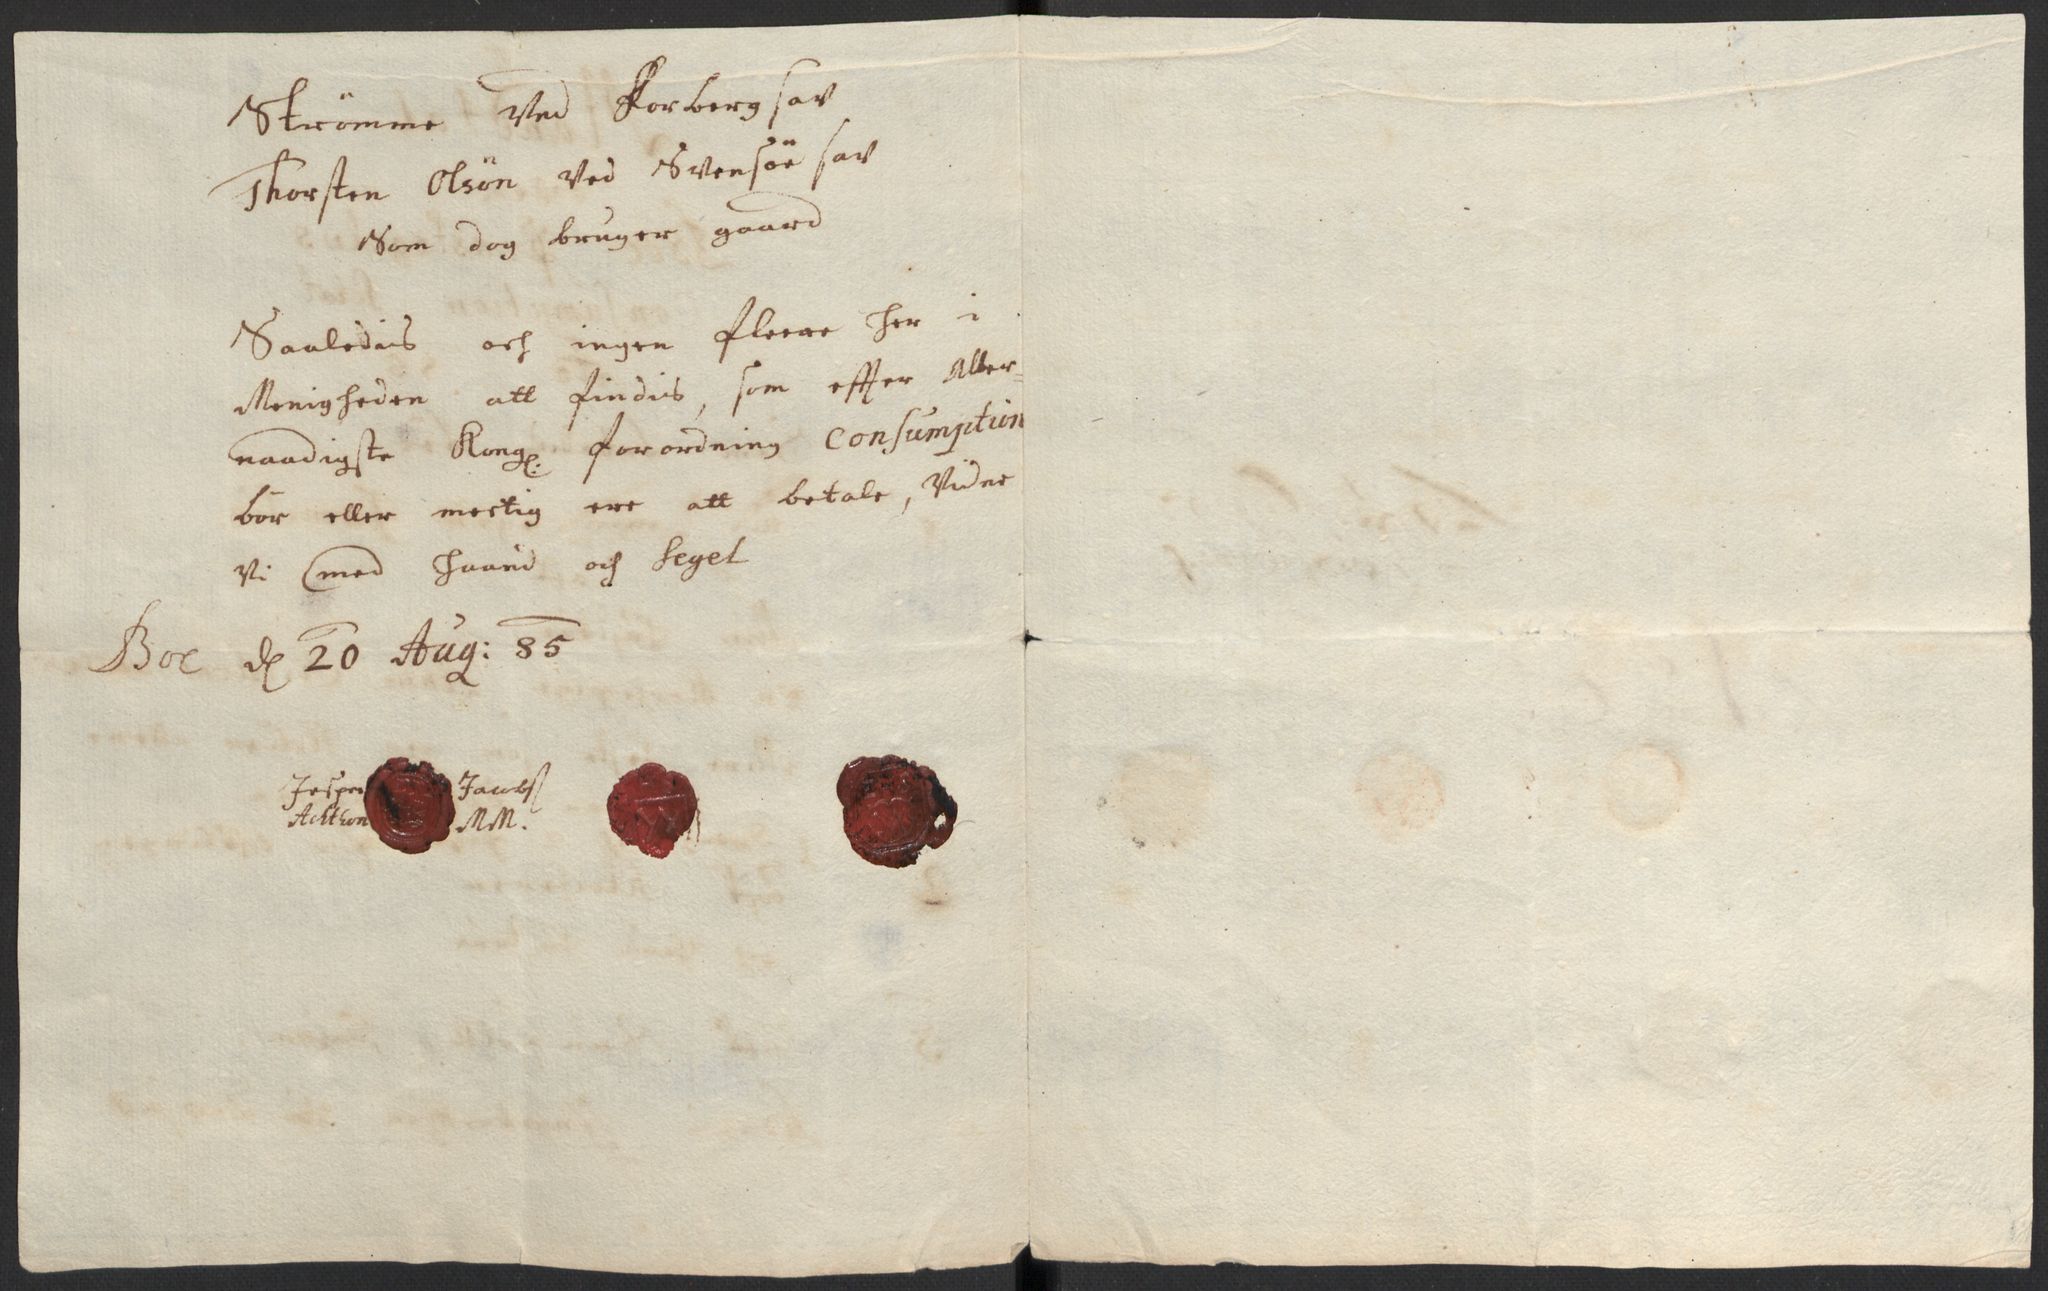 Strömme ved Forberg sav
Thorsten Olsön ved Svensöe sav
Som dog bruger gaard
Saaledis och ingen fleere her i
Menigheden att findis, som effter Aller-
naadigste Kongl: forordning Consumption
bör eller mectig ere att betale, Vidne
Vi med haand och Segel
Boe d 20 Aug: 85
Jesper Jacobs
Achthon MM.